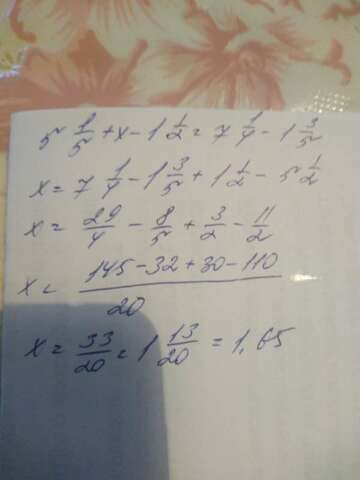 5 1/5 + x - 1 1/2 = 7 1/4 - 1 3/5
x = 7 1/4 - 1 3/5 + 1 1/2 - 5 1/2
x = 29/4 - 8/5 + 3/2 - 11/2
x = (145 - 32 + 30 - 110)/20
x = 33/20 = 1 13/20 = 1,65